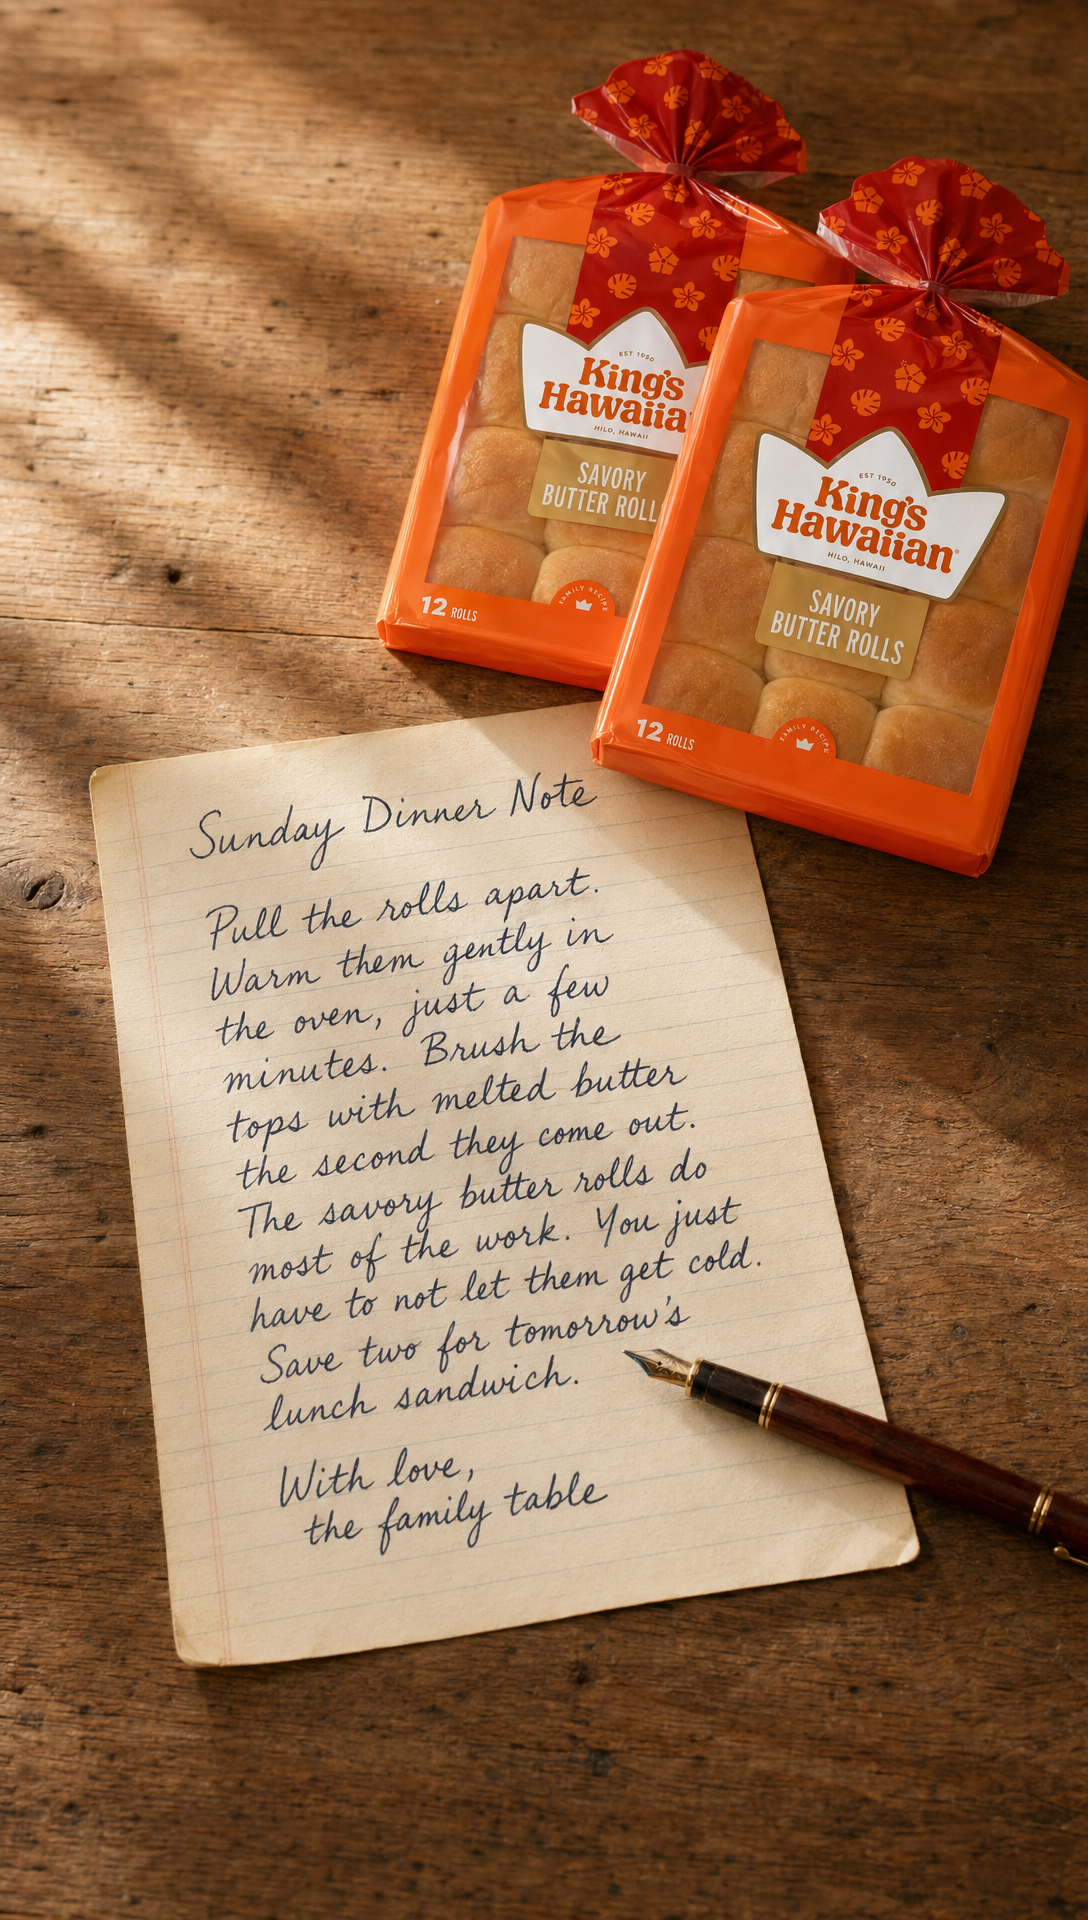 EST 1950
King's
Hawaiia
HILO, HAWAII
SAVORY
BUTTER ROLL
12 ROLLS
FAMILY RECIPE
EST 1950
King's
Hawaiian®
HILO, HAWAII
SAVORY
BUTTER ROLLS
12 ROLLS
FAMILY RECIPE
Sunday Dinner Note
Pull the rolls apart.
Warm them gently in
the oven, just a few
minutes. Brush the
tops with melted butter
the second they come out.
The savory butter rolls do
most of the work. You just
have to not let them get cold.
Save two for tomorrow's
lunch sandwich.
With love,
the family table